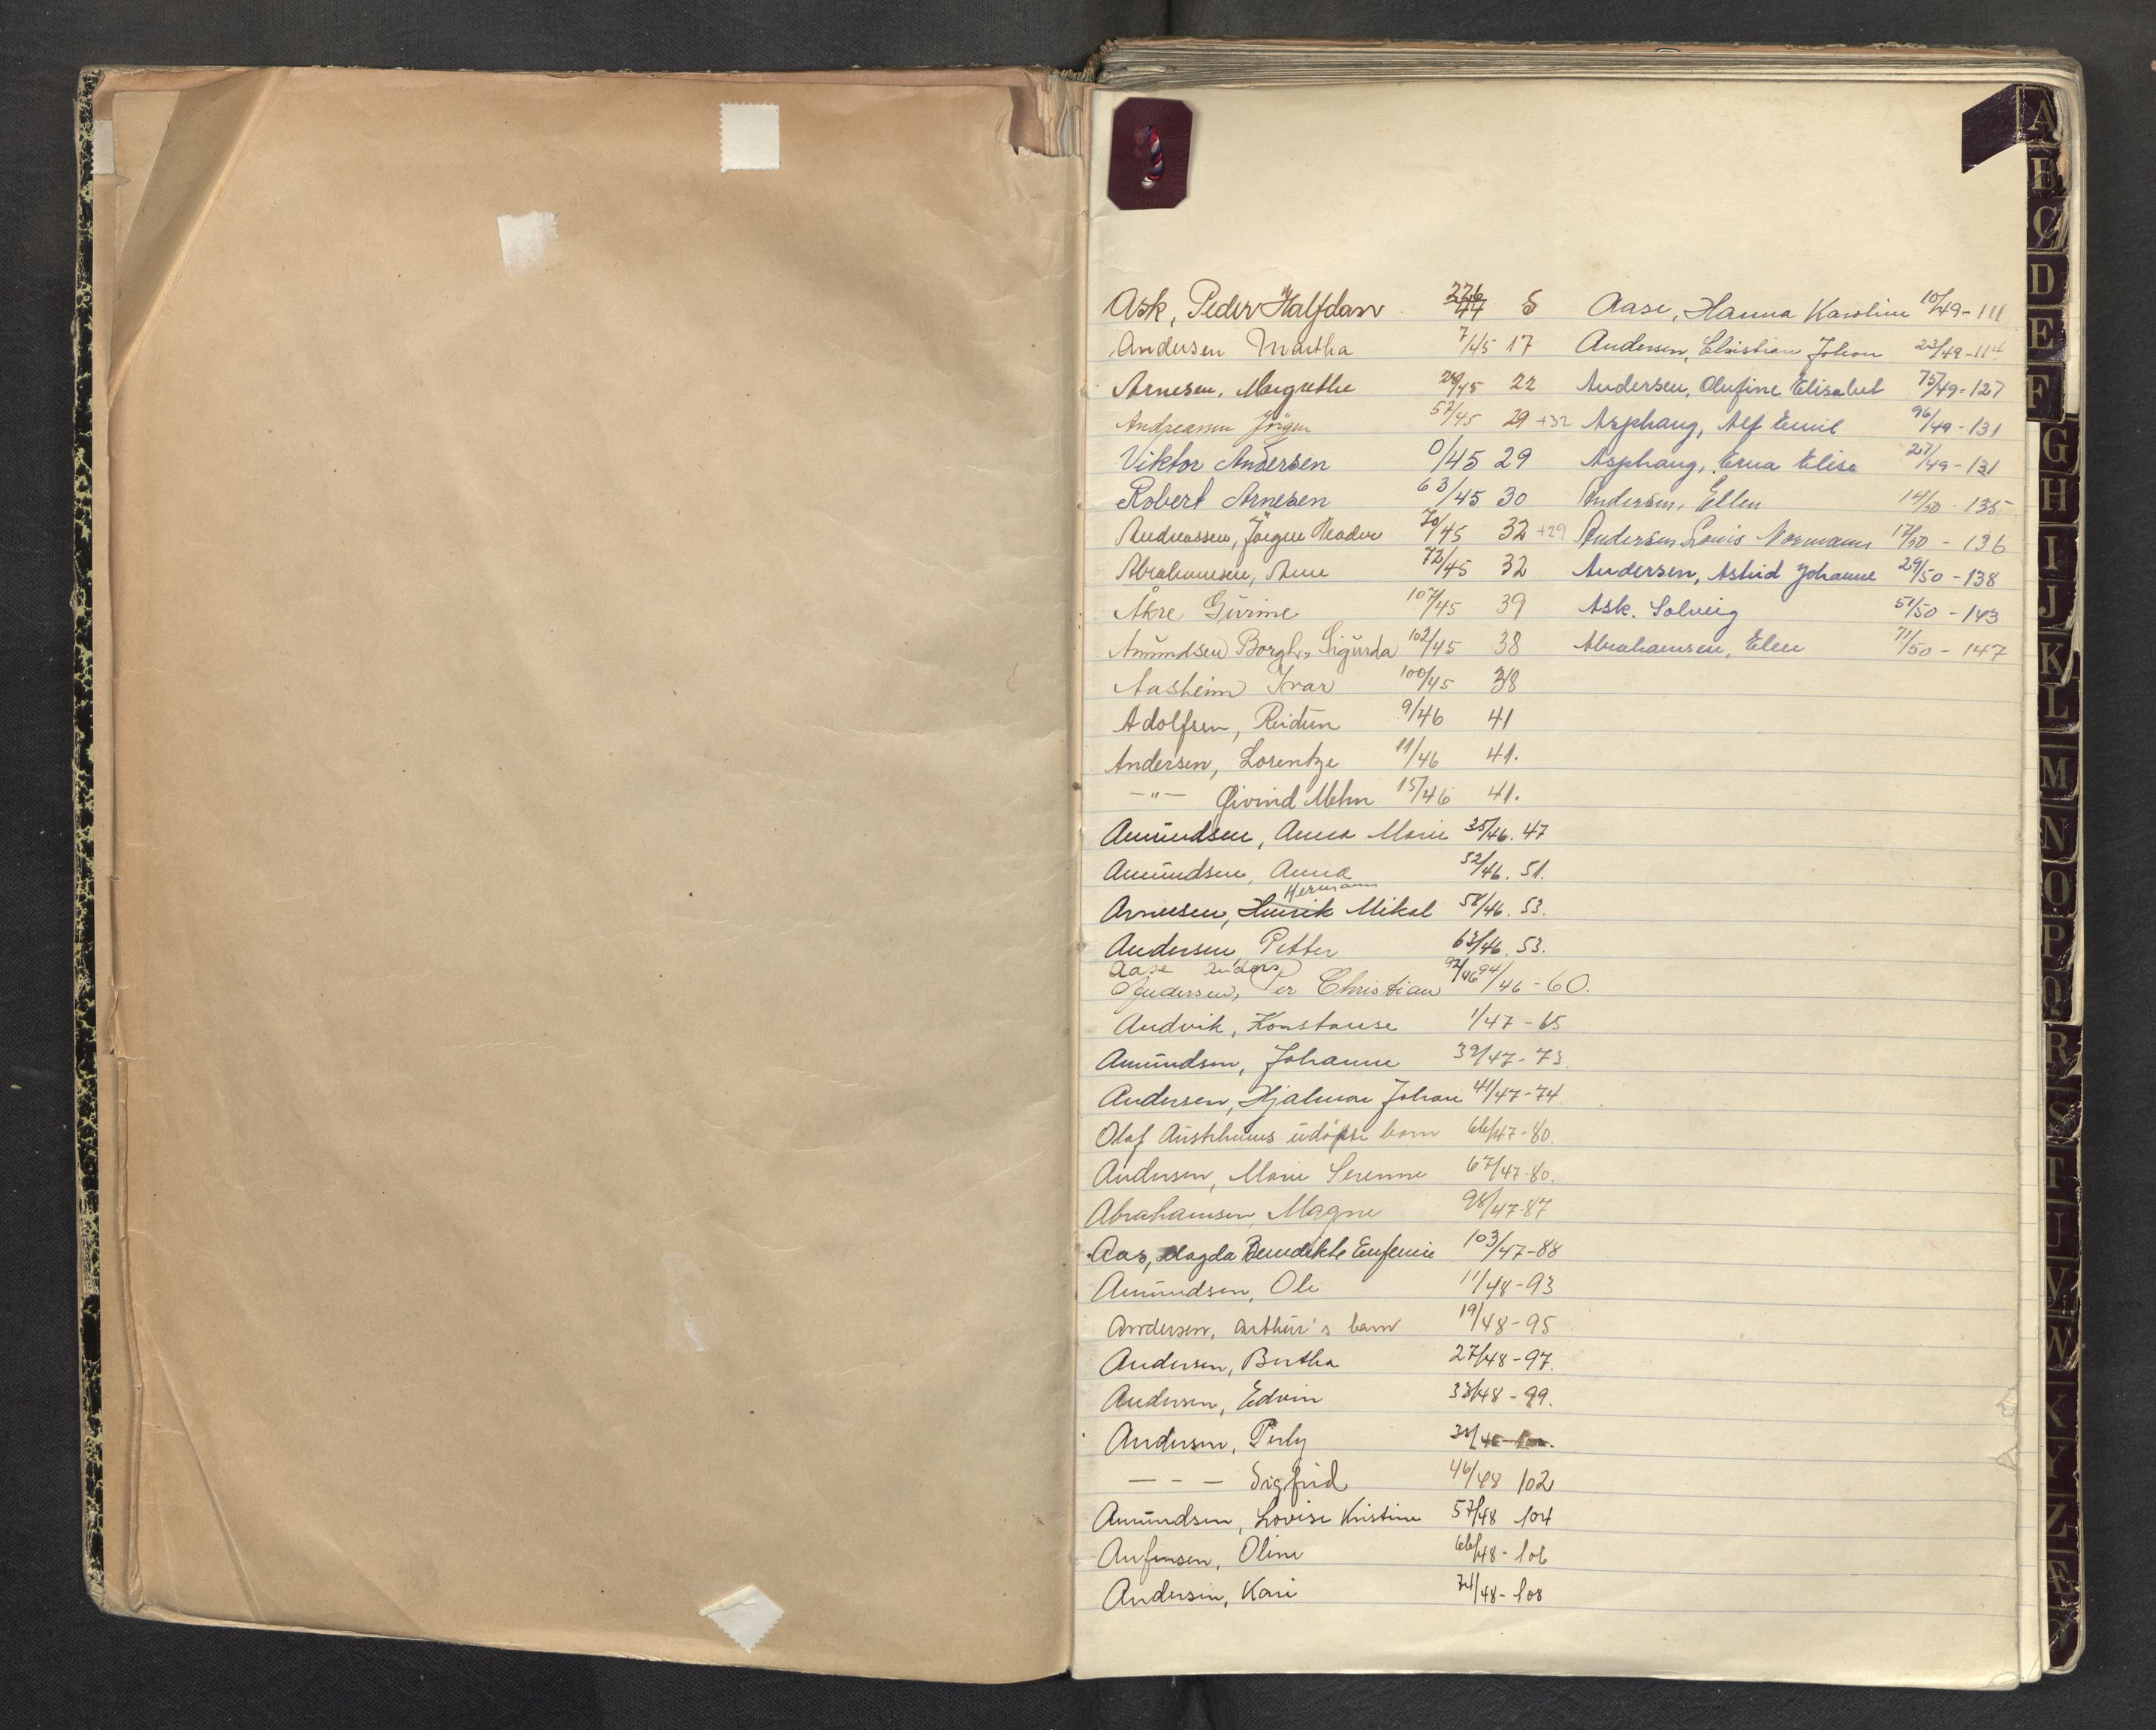 Ask, Peder Halfdan 226/44 8
Andersen Martha 7/45 17
Arnesen, Margrethe 28/45 22
Andreassen Jörgen 57/45 29 +32
Viktor Andersen 0/45 29
Robert Arnesen 63/45 30
Andreassen, Jörgen Peader 70/45 32 +29
Abrahamsen, Arne 72/45 32
Åkre Gurine 107/45 39
Amundsen Borgh. Sigurda 102/45 38
Aasheim Ivar 100/45 38
Adolfsen, Reidun 9/46 41
Andersen, Lorentze 11/46 41.
—"— Øivind Mehn 15/46 41.
Amundsen, Anna Marie 35/46. 47
Amundsen, Anna 52/46. 51.
Hermann
Arnesen, Henrik Mikal 58/46. 53.
Andersen, Petter 63/46. 53.
Aase Anders 92/46
Andersen, Per Christian 94/46 - 60.
Andvik, Konstanse 1/47 - 65
Amundsen, Johanne 39/47 - 73
Andersen, Hjalmar Johan 41/47 - 74
Olaf Austrheims udöpte barn 66/47 - 80.
Andersen, Marie Serenne 67/47 - 80.
Abrahamsen, Magne 98/47 - 87
Aas, Magda Benedikte Eufemie 103/47 - 88
Amundsen, Ole 11/48 - 93
Andersen, Arthur's barn 19/48 - 95
Andersen, Bertha 27/48 - 97.
Andersen, Edvin 33/48 - 99.
Andersen, Perly 38/48
— - — Sigfrid 46/48 102
Amundsen, Lovise Kristine 57/48 104
Anfinsen, Oline 66/48 - 106
Andersen, Kari 74/48 - 108
Aase, Hanna Karoline 10/49 - 111
Andersen, Christian Johan 23/49 - 114
Andersen, Olufine Elisabet 75/49 - 127
Asphaug, Alf Emil 96/49 - 131
Asphaug, Erna Elise 27/49 - 131
Andersen, Ellen 14/50 - 135
Andersen Louis Normann 17/50 - 136
Andersen, Astrid Johanne 29/50 - 138
Ask. Solveig 51/50 - 143
Abrahamsen, Elen 71/50 - 147
A
B
C
D
E
F
G
H
I
J
K
L
M
N
O
P
Q
R
S
T
V
W
X
Y
Z
Æ